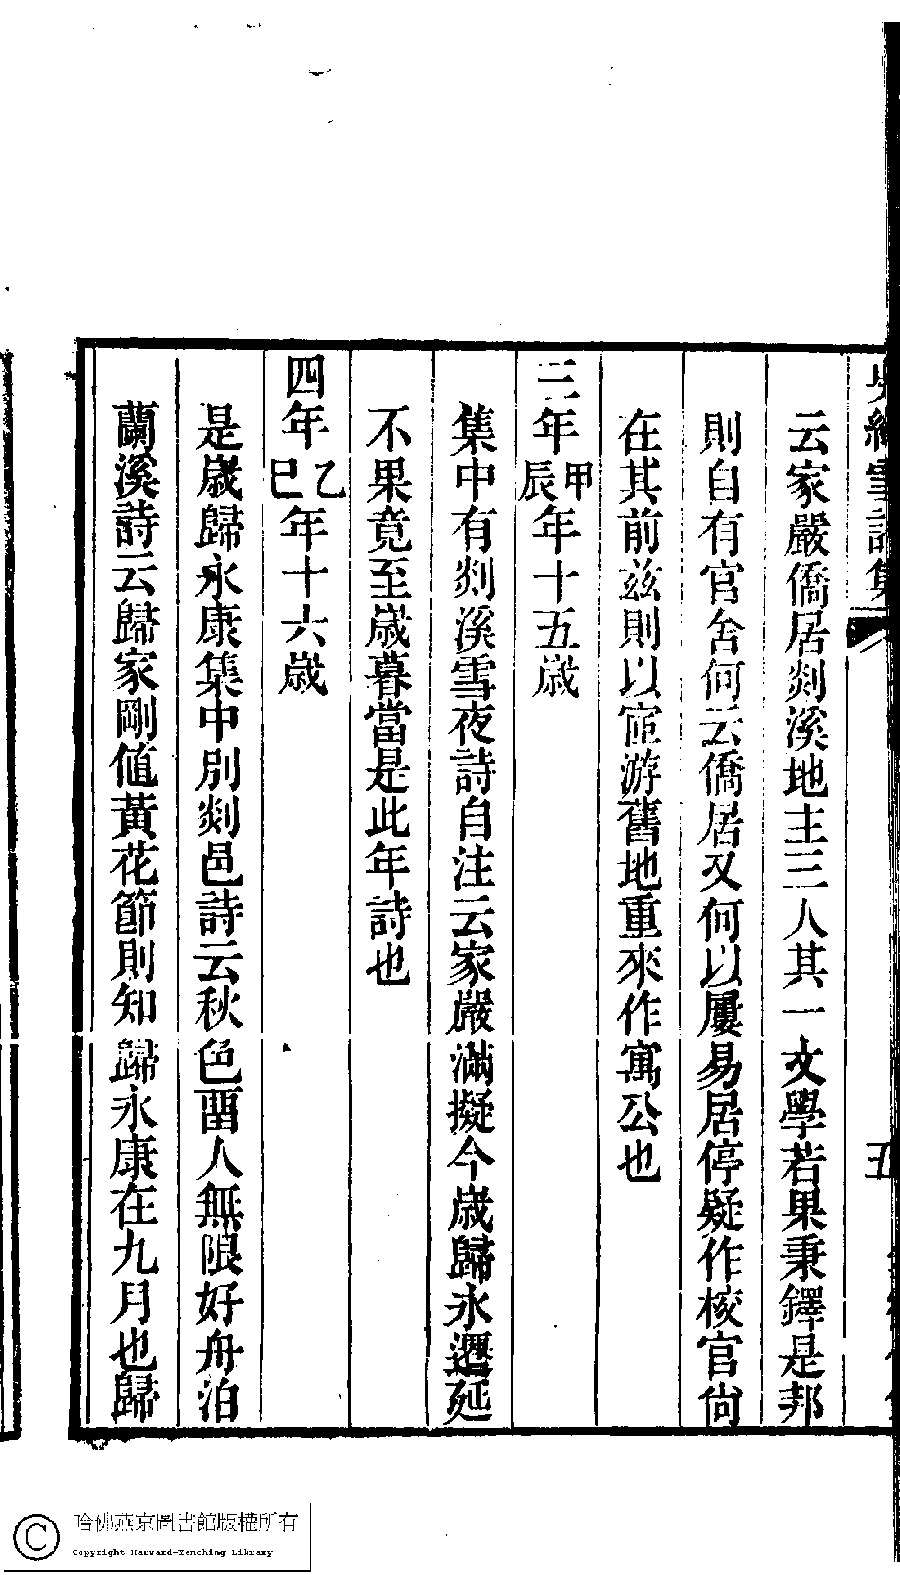 云家嚴僑居剡溪地主三人其一文學若果秉鐸是邦
則自有官舍何云僑居又何以屢易居停疑作校官尙
在其前兹則以宦游舊地重來作寓公也
三年甲辰年十五歲
集中有剡溪雪夜詩自注云家嚴滿擬今歲歸永遷延
不果竟至歲暮當是此年詩也
四年乙巳年十六歲
是歲歸永康集中別剡邑詩云秋色畱人無限好舟泊
蘭溪詩云歸家剛値黃花節則知歸永康在九月也歸
哈佛燕京圖書館版權所有
Copyright Harvard-Yenching Library